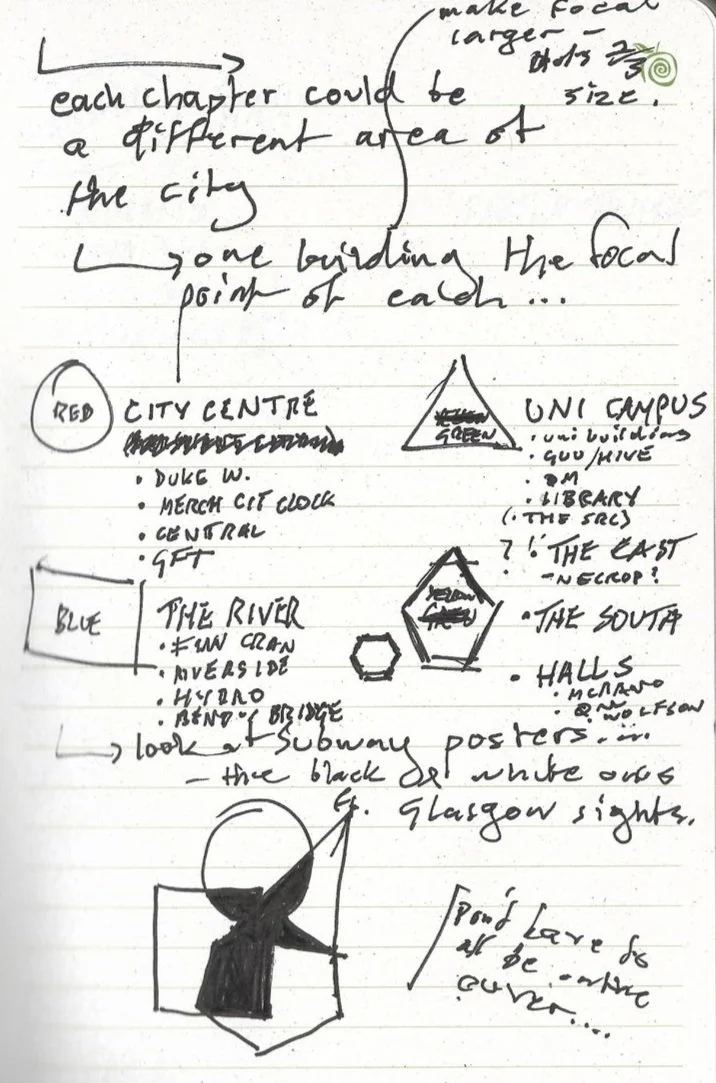 make focal
larger -
2/3
size.
each chapter could be
a different area of
the city
one building the focal
point of each...
RED
CITY CENTRE
• DUKE W.
• MERCH CIT CLOCK
• CENTRAL
• GFT
GREEN
UNI CAMPUS
• uni building
• GUU/HIVE
• LIBRARY
(• THE SRC)
BLUE
THE RIVER
• FUN CRAN
• RIVERSIDE
• HYDRO
• BENDY BRIDGE
? ! THE EAST
- NECROP?
YELLOW
• THE SOUTH
• HALLS
• MCRANO
• QM
• WOLFSON
look at subway posters...
- the black & white ones
Glasgow sights.
Don't have to
all be on the
cover....